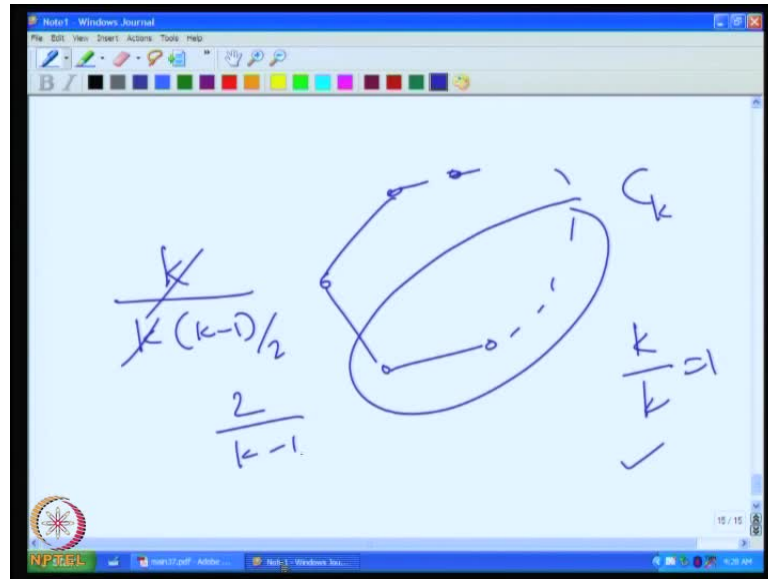 Note1 - Windows Journal
File Edit View Insert Actions Tools Help
B I
C_k
k
k (k-1)/2
2
k-1
k
k =1
✓
15 / 15
NPTEL
main37.pdf - Adobe ...
Note1 - Windows Jou...
4:28 AM